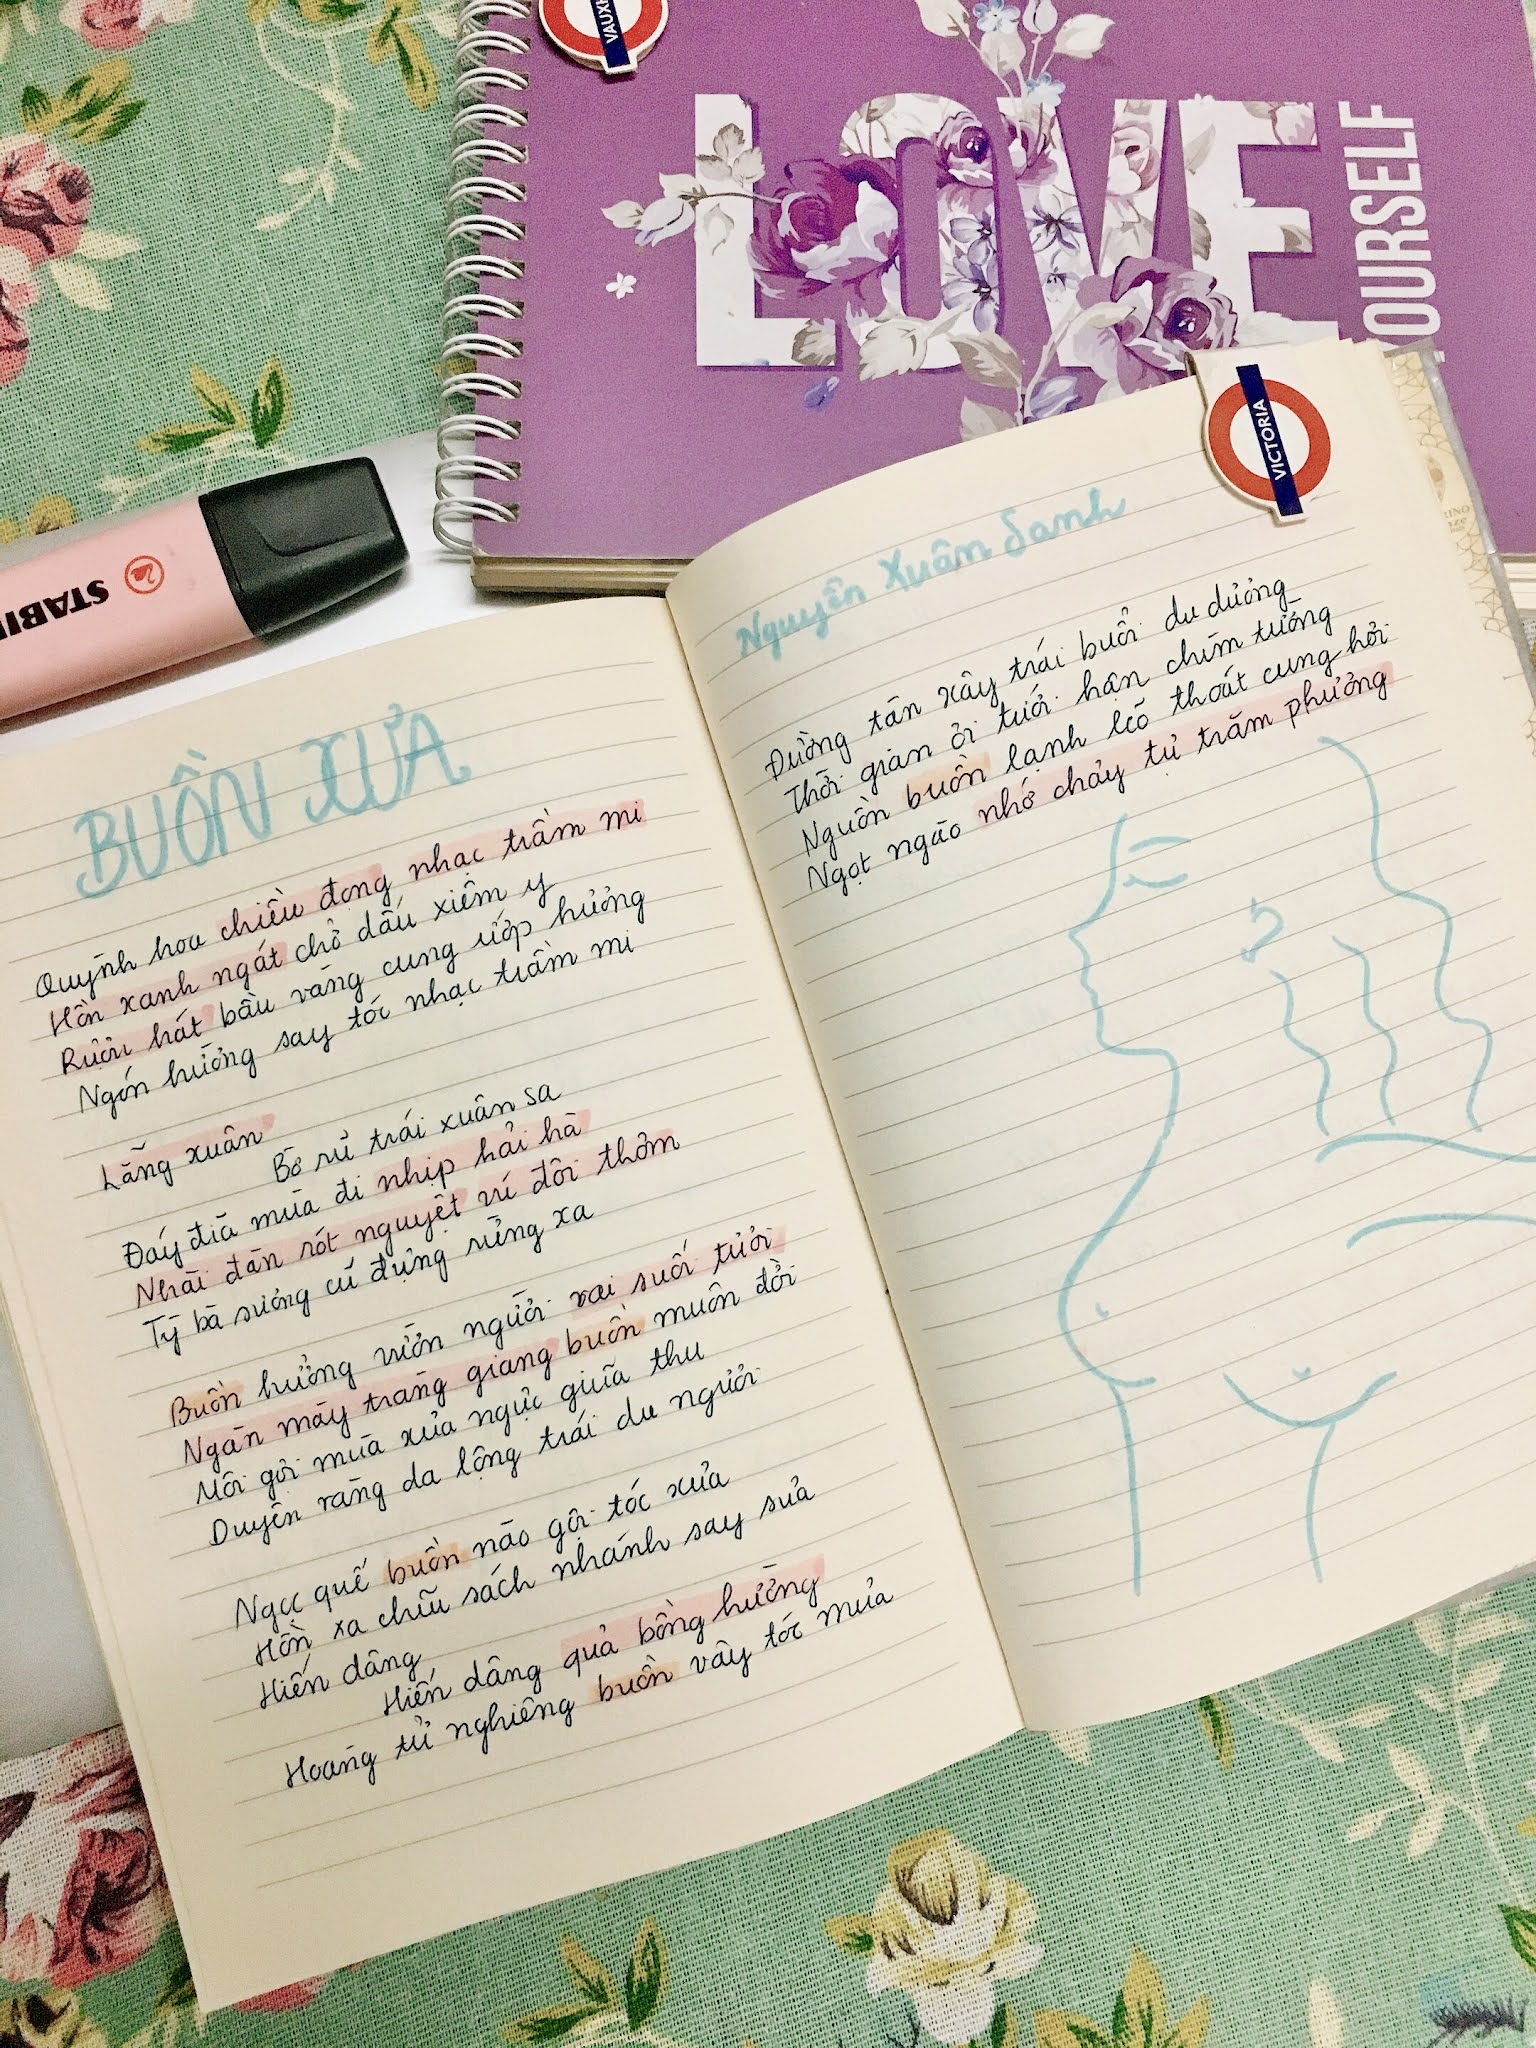 VAUXH
LOVE
OURSELF
VICTORIA
STABI
BUỒN XƯA
Quỳnh hoa chiều đọng nhạc trầm mi
Hồn xanh ngát chở dấu xiêm y
Rượu hát bầu vàng cung ướp hương
Ngón hường say tóc nhạc trầm mi
Lẵng xuân
Bờ rủ trái xuân sa
Đáy đĩa mùa đi nhịp hải hà
Nhài đàn rót nguyệt vú đôi thơm
Tỳ bà sương cũ đựng rừng xa
Buồn hưởng vườn người vai suối tươi
Ngàn mây tràng giang buồn muôn đời
Môi gợi mùa xưa ngực giữa thu
Duyên vàng da lộng trái du người
Ngọc quế buồn nào gội tóc xưa
Hồn xa chĩu sách nhánh say sưa
Hiến dâng
Hiến dâng quả bồng hường
Hoàng tử nghiêng buồn vây tóc mưa
Nguyễn Xuân Sanh
Đường tàn xây trái buổi du dương
Thời gian ơi tưới hận chìm tường
Nguồn buồn lạnh lẽo thoát cung hơi
Ngọt ngào nhớ chảy tự trăm phương